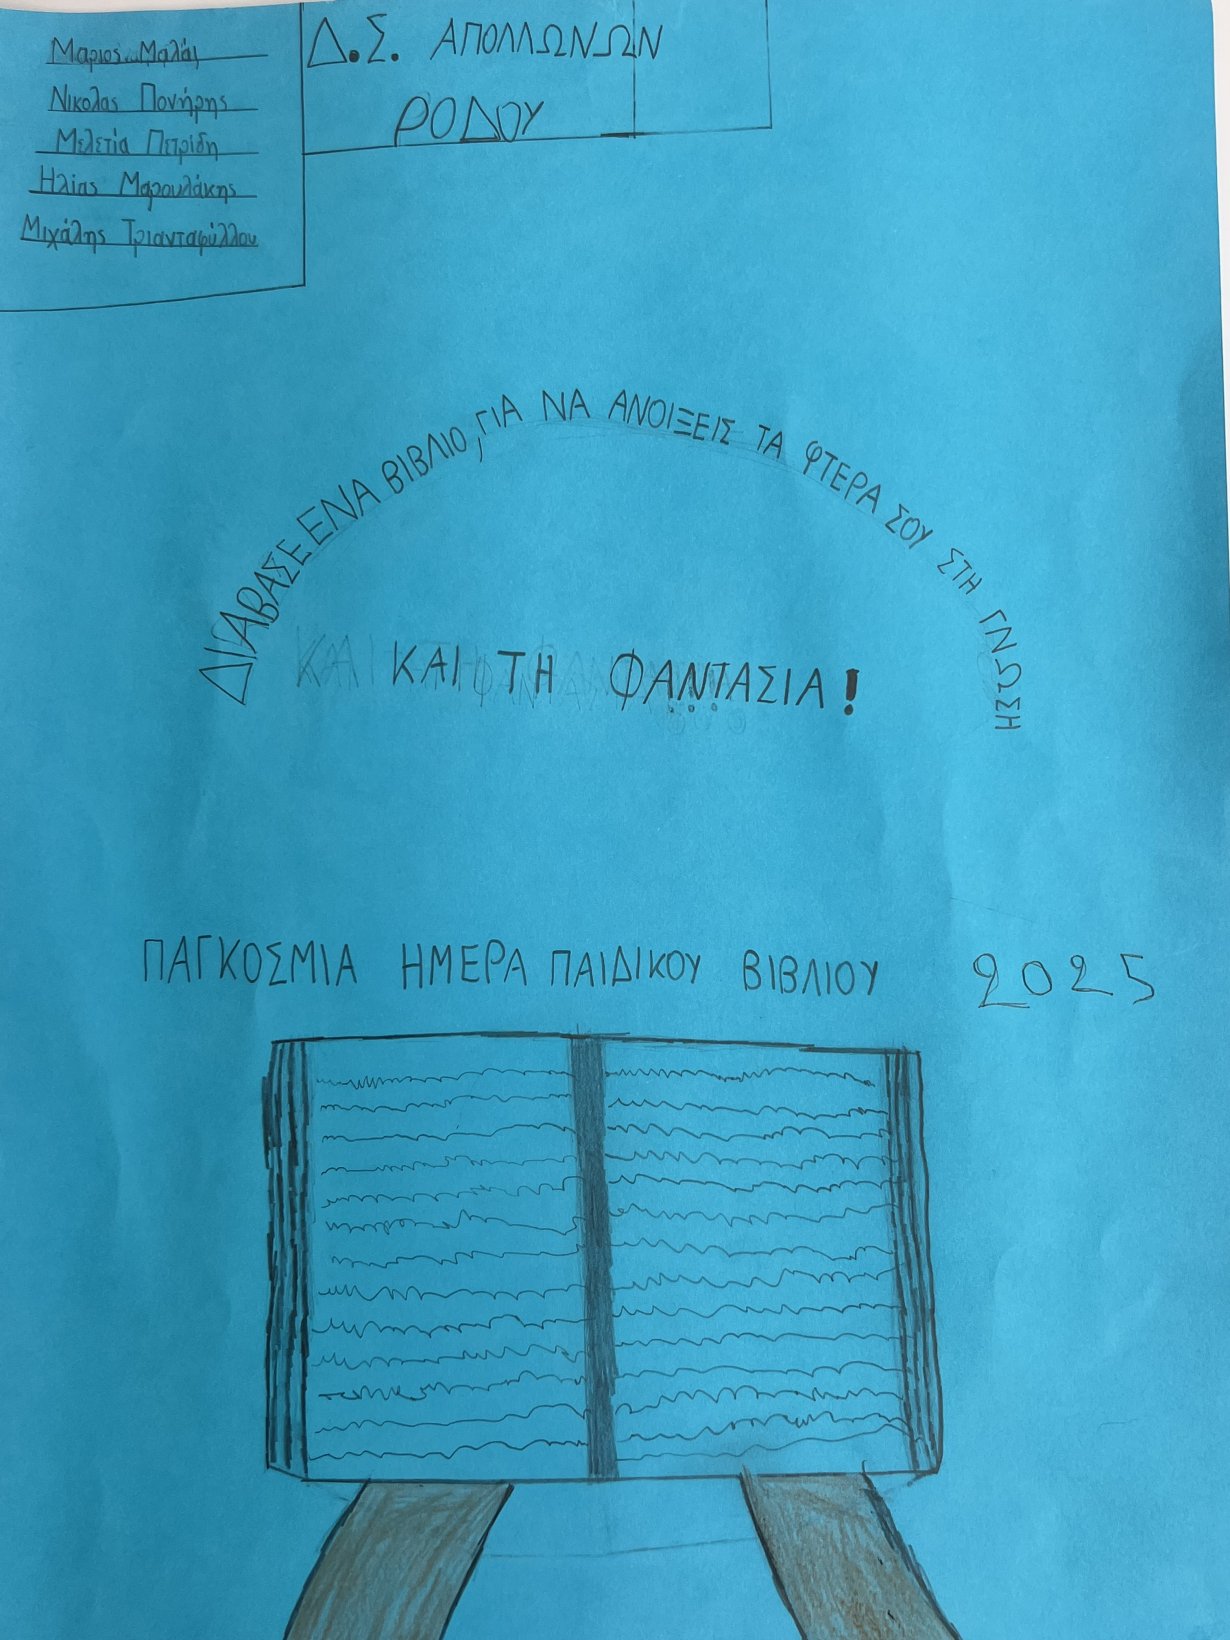 Μαριος Μαλάι
Νικολας Πονήρης
Μελετία Πετρίδη
Ηλίας Μαρουλάκης
Μιχάλης Τριανταφύλλου
Δ.Σ. ΑΠΟΛΛΩΝΩΝ
ΡΟΔΟΥ
ΔΙΑΒΑΣΕ ΕΝΑ ΒΙΒΛΙΟ, ΓΙΑ ΝΑ ΑΝΟΙΞΕΙΣ ΤΑ ΦΤΕΡΑ ΣΟΥ ΣΤΗ ΓΝΩΣΗ
ΚΑΙ ΤΗ ΦΑΝΤΑΣΙΑ!
ΠΑΓΚΟΣΜΙΑ ΗΜΕΡΑ ΠΑΙΔΙΚΟΥ ΒΙΒΛΙΟΥ 2025